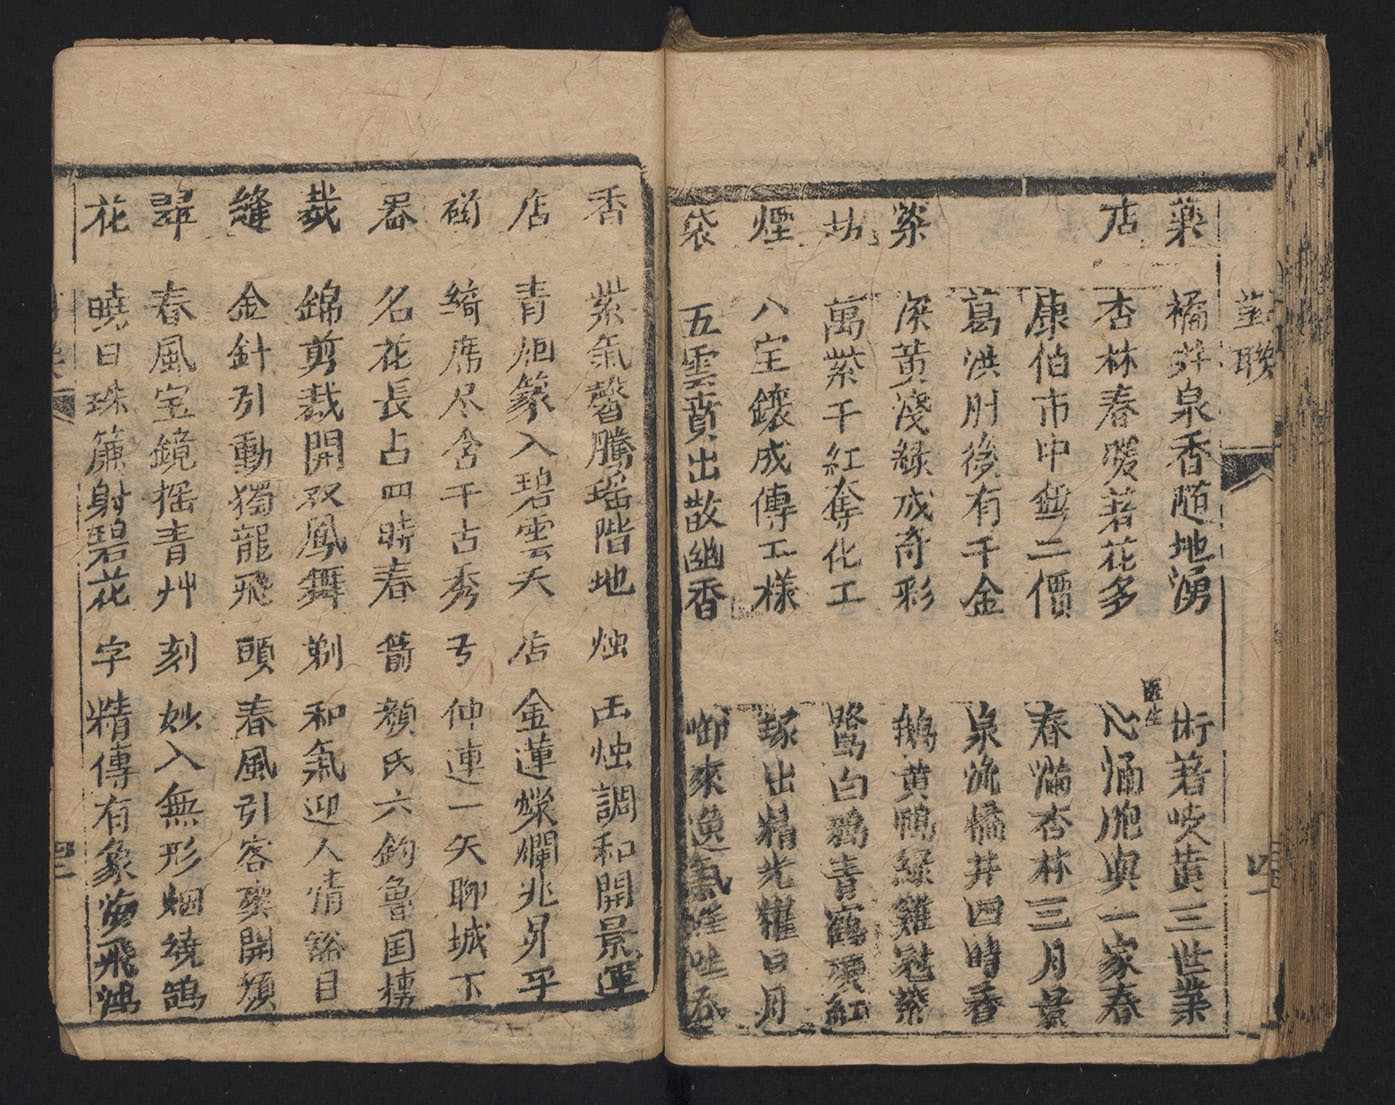 藥 橘井泉香随地湧 術著岐黄三世業
店 杏林春暖着花多 医生 心涵胞與一家春
康伯市中無二價 春滿杏林三月景
葛洪肘後有千金 泉流橘井四時香
染 深黄淺緑成奇彩 鵝黄鴨緑雞冠紫
坊 萬紫千紅奪化工 鷺白鴉青鶴頂紅
煙 八宝鑲成傳工様 琢出精光耀日月
袋 五雲賁出散幽香 啣來
香 紫氣馨騰瑶階地 烛 玉烛調和開景運
店 青烟篆入碧雲天 店 金蓮燦爛兆昇平
磁 綺席尽含千古秀 弓 仲連一矢聊城下
器 名花長占四時春 箭 顔氏六鈞魯国棲
裁 錦剪裁開双鳳舞 剃 和氣迎人情豁目
縫 金針引動獨龍飛 頭 春風引客笑開顔
翠 春風宝鏡摇青艸 刻 妙入無形烟繞鵠
花 曉日珠簾射碧花 字 精傳有象海飛鴻